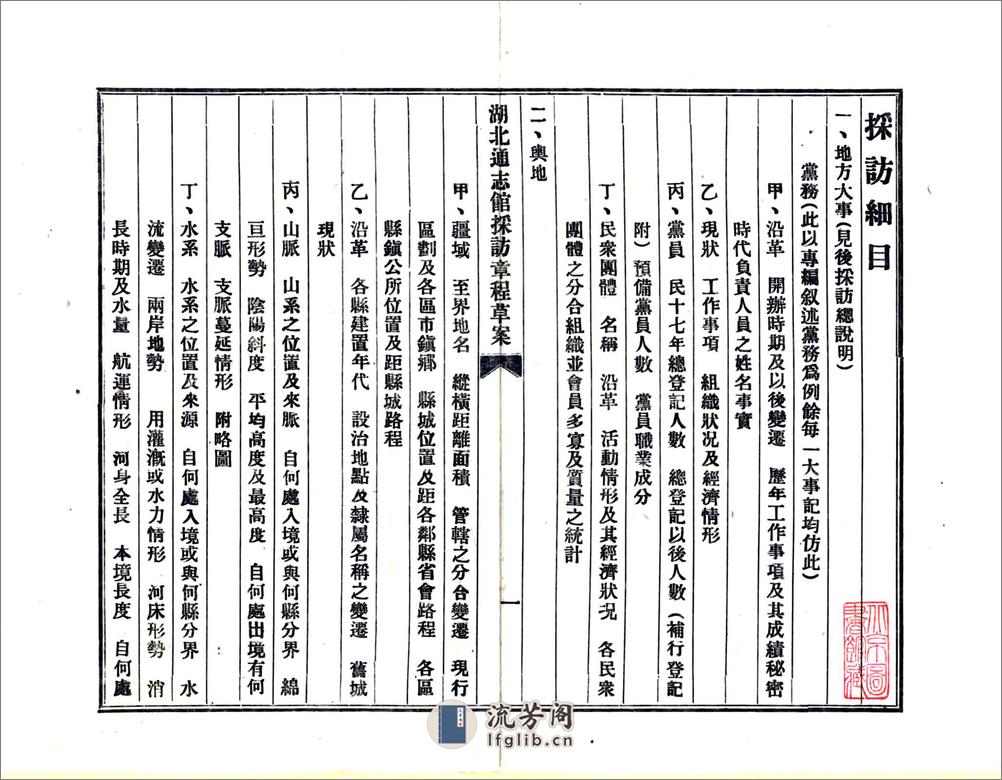 採訪細目
一、地方大事（見後採訪總說明）
黨務（此以專編叙述黨務爲例餘每一大事記均仿此）
甲、沿革　開辦時期及以後變遷　歷年工作事項及其成績秘密
時代負責人員之姓名事實
乙、現狀　工作事項　組織狀况及經濟情形
丙、黨員　民十七年總登記人數　總登記以後人數（補行登記
附）預備黨員人數　黨員職業成分
丁、民衆團體　名稱　沿革　活動情形及其經濟狀况　各民衆
團體之分合組織並會員多寡及質量之統計
二、輿地
湖北通志館採訪章程草案
一
甲、疆域　至界地名　縱橫距離面積　管轄之分合變遷　現行
區劃及各區市鎮鄉　縣城位置及距各鄰縣省會路程　各區
縣鎮公所位置及距縣城路程
乙、沿革　各縣建置年代　設治地點及隸屬名稱之變遷　舊城
現狀
丙、山脈　山系之位置及來脈　自何處入境或與何縣分界　綿
亘形勢　陰陽斜度　平均高度及最高度　自何處出境有何
支脈　支脈蔓延情形　附略圖
丁、水系　水系之位置及來源　自何處入境或與何縣分界　水
流變遷　兩岸地勢　用灌漑或水力情形　河床形勢　消
長時期及水量　航運情形　河身全長　本境長度　自何處
流芳阁
lfglib.cn